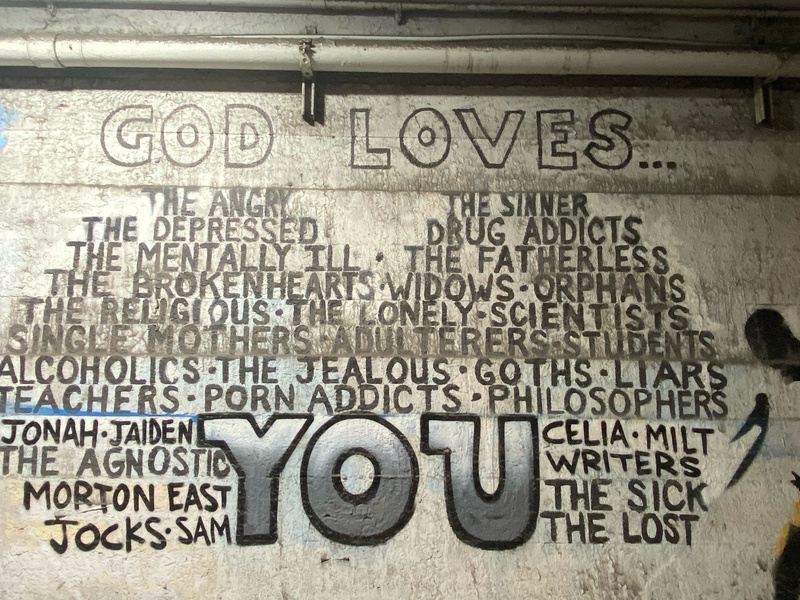 GOD LOVES...
THE ANGRY THE SINNER
THE DEPRESSED DRUG ADDICTS
THE MENTALLY ILL · THE FATHERLESS
THE BROKENHEARTS·WIDOWS·ORPHANS
THE RELIGIOUS·THE LONELY·SCIENTISTS
SINGLE MOTHERS·ADULTERERS·STUDENTS
ALCOHOLICS·THE JEALOUS·GOTHS·LIARS
TEACHERS·PORN ADDICTS·PHILOSOPHERS
JONAH·JAIDEN
THE AGNOSTIC
MORTON EAST
JOCKS·SAM
YOU
CELIA·MILT
WRITERS
THE SICK
THE LOST